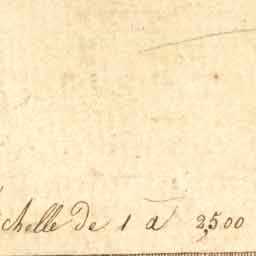 chelle de 1 a 2,500